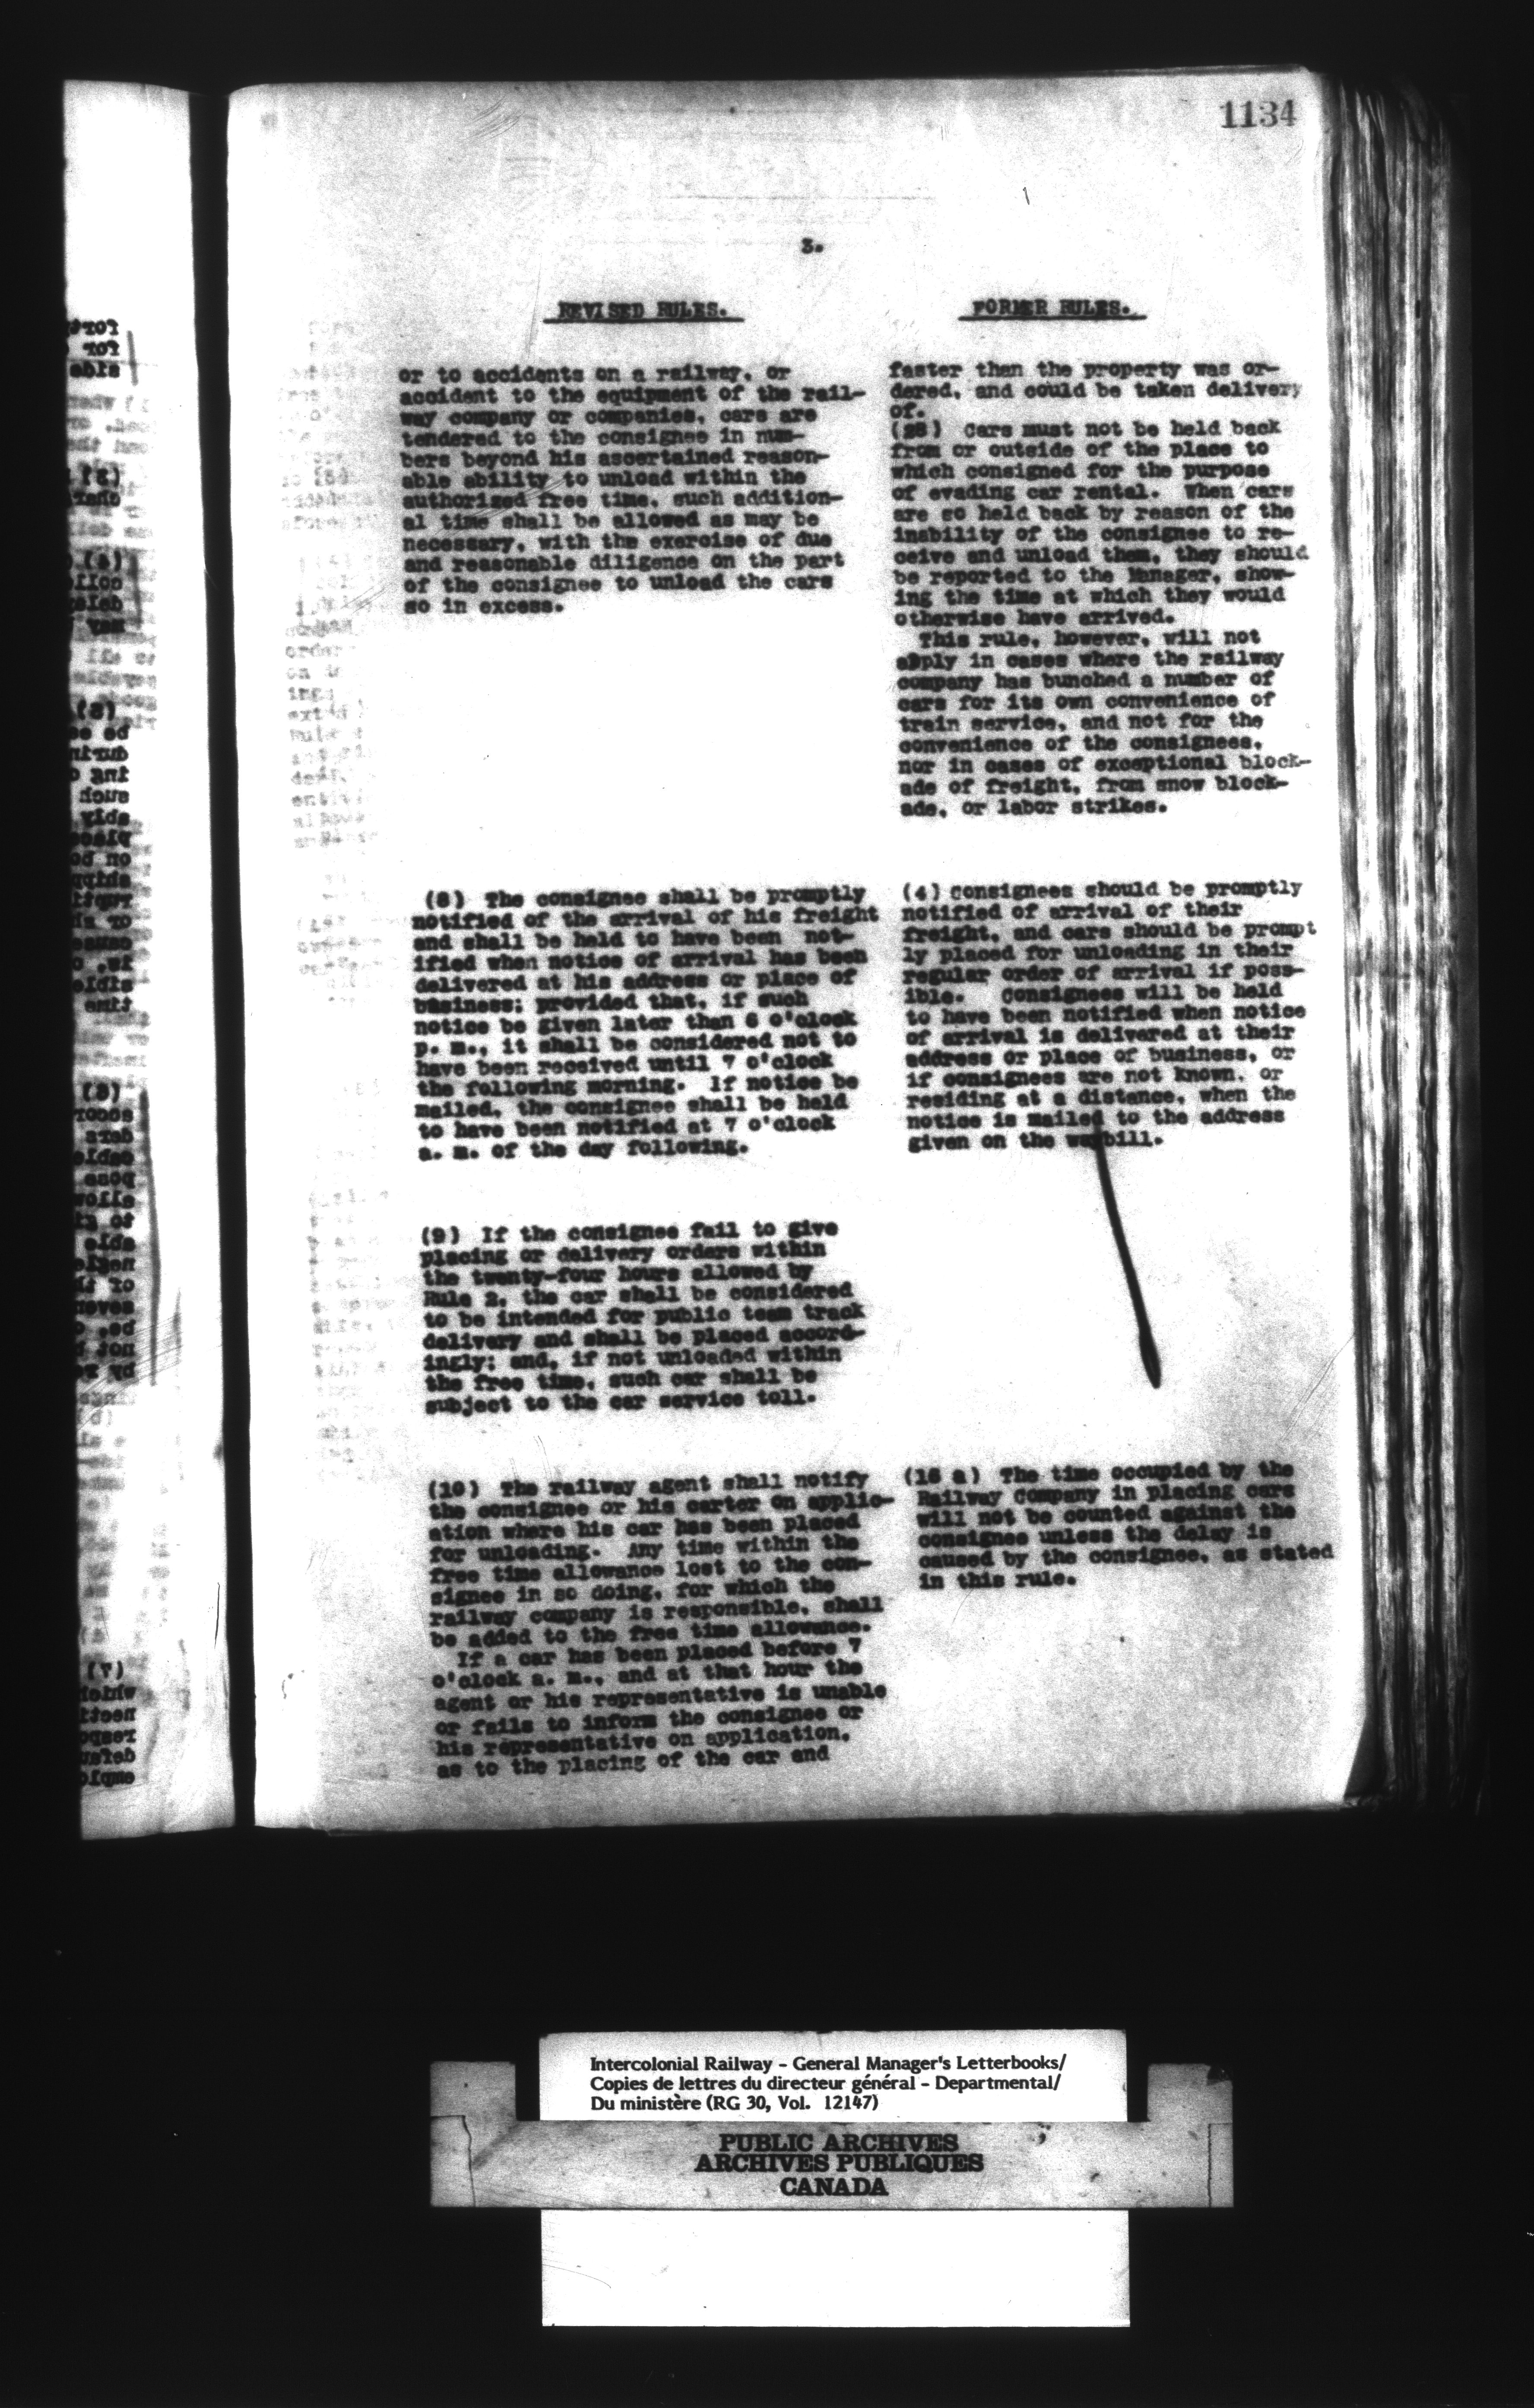 1134
3.
REVISED RULES.
or to accidents on a railway, or
accident to the equipment of the rail-
way company or companies, cars are
tendered to the consignee in num-
bers beyond his ascertained reason-
able ability to unload within the
authorized free time, such addition-
al time shall be allowed as may be
necessary, with the exercise of due
and reasonable diligence on the part
of the consignee to unload the cars
so in excess.
(8) The consignee shall be promptly
notified of the arrival of his freight
and shall be held to have been not-
ified when notice of arrival has been
delivered at his address or place of
business; provided that, if such
notice be given later than 6 o'clock
p. m., it shall be considered not to
have been received until 7 o'clock
the following morning. If notice be
mailed, the consignee shall be held
to have been notified at 7 o'clock
a. m. of the day following.
(9) If the consignee fail to give
placing or delivery orders within
the twenty-four hours allowed by
Rule 2, the car shall be considered
to be intended for public team track
delivery and shall be placed accord-
ingly; and, if not unloaded within
the free time, such car shall be
subject to the car service toll.
(10) The railway agent shall notify
the consignee or his carter on applic-
ation where his car has been placed
for unloading. Any time within the
free time allowance lost to the con-
signee in so doing, for which the
railway company is responsible, shall
be added to the free time allowance.
If a car has been placed before 7
o'clock a. m., and at that hour the
agent or his representative is unable
or fails to inform the consignee or
his representative on application,
as to the placing of the car and
FORMER RULES.
faster than the property was or-
dered, and could be taken delivery
of.
Cars must not be held back
from or outside of the place to
which consigned for the purpose
of evading car rental. When cars
are so held back by reason of the
inability of the consignee to re-
ceive and unload them, they should
be reported to the Manager, show-
ing the time at which they would
otherwise have arrived.
This rule, however, will not
apply in cases where the railway
company has bunched a number of
cars for its own convenience of
train service, and not for the
convenience of the consignees,
nor in cases of exceptional block-
ade of freight, from snow block-
ade, or labor strikes.
(4) Consignees should be promptly
notified of arrival of their
freight, and cars should be prompt
ly placed for unloading in their
regular order of arrival if poss-
ible. Consignees will be held
to have been notified when notice
of arrival is delivered at their
address or place of business, or
if consignees are not known, or
residing at a distance, when the
notice is mailed to the address
given on the waybill.
(16 a) The time occupied by the
Railway Company in placing cars
will not be counted against the
consignee unless the delay is
caused by the consignee, as stated
in this rule.
Intercolonial Railway - General Manager's Letterbooks/
Copies de lettres du directeur général - Departmental/
Du ministère (RG 30, Vol. 12147)
PUBLIC ARCHIVES
ARCHIVES PUBLIQUES
CANADA